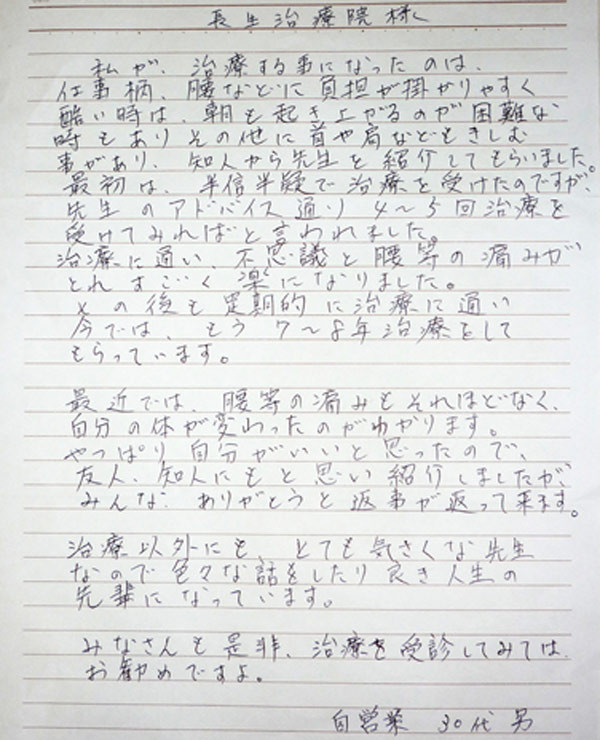 長生治療院様へ
私が、治療する事になったのは、
仕事柄、腰などに負担が掛かりやすく
酷い時は、朝も起き上がるのが困難な
時もありその他に首や肩などもきしむ
事があり、知人から先生を紹介してもらいました。
最初は、半信半疑で治療を受けたのですが、
先生のアドバイス通り4〜5回治療を
受けてみればと言われました。
治療に通い、不思議と腰等の痛みが
とれすごく楽になりました。
その後も定期的に治療に通い
今では、もう7〜8年治療をして
もらっています。
最近では、腰等の痛みもそれほどなく、
自分の体が変わったのがわかります。
やっぱり自分がいいと思ったので、
友人、知人にもと思い紹介しましたが、
みんな、ありがとうと返事が返って来ます。
治療以外にも、とても気さくな先生
なので色々な話をしたり良き人生の
先輩になっています。
みなさんも是非、治療を受診してみては、
お勧めですよ。
自営業 30代 男